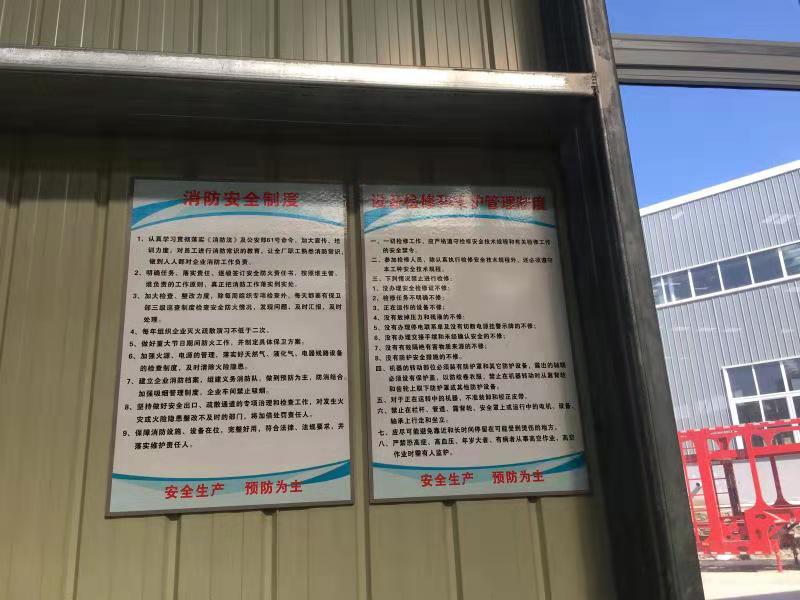 消防安全制度
1、认真学习贯彻落实《消防法》及公安部61号命令,加大宣传、培
训力度,对员工进行消防常识的教育,让全厂职工熟悉消防常识,
做到人人都对企业消防工作负责。
2、明确任务、落实责任,逐级签订安全防火责任书,按照谁主管、
谁负责的工作原则,真正把消防工作落实到实处。
3、加大检查、整改力度,除每周组织专项检查外,每天都要有保卫
部三级巡查制度检查安全防火情况,发现问题,及时汇报,及时
处理。
4、每年组织企业灭火疏散演习不低于二次。
5、做好重大节日期间防火工作,并制定具体保卫方案。
6、加强火源、电源的管理,落实好天然气、液化气、电器线路设备
的检查制度,及时清除火险隐患。
7、建立企业消防档案,组建义务消防队,做到预防为主,防消结合。
加强吸烟管理制度,企业车间禁止吸烟。
8、坚持做好安全出口、疏散通道的专项治理和检查工作,对发生火
灾或火险隐患整改不及时的部门,将加倍处罚责任人。
9、保障消防设施、设备在位,完整好用,符合法律、法规要求,并
落实维护责任人。
安全生产 预防为主
设备检修和维护管理制度
一、一切检修工作,应严格遵守检修安全技术规程和有关检修工作
的安全禁令。
二、参加检修人员,除认真执行检修安全技术规程外,还必须遵守
本工种安全技术规程。
三、下列情况禁止进行检修:
1、没办理安全检修证不修;
2、检修任务不明确不修;
3、正在运作的设备不修;
4、没有放掉压力和残液的不修;
5、没有办理停电联系单及没有切断电源挂警示牌的不修;
6、没有办理交接手续和未经确认安全的不修;
7、没有有效隔绝有害物质来源的不修;
8、没有防护安全措施的不修。
四、机器的转动部位必须装有防护罩和其它防护设备,露出的轴头
必须设有保护盖,以防绞卷衣服,禁止在机器转动时从靠背轮
和齿轮上取下防护罩或其他防护设备。
五、对于正在运转中的机器,不准装卸和校正皮带。
六、禁止在栏杆、管道、靠背轮、安全罩上或运行中的电机、设备、
轴承上行走和坐立。
七、应尽可能避免靠近和长时间停留在可能受到烫伤的地方。
八、严禁恐高症、高血压、年岁大者、有病者从事高空作业,高空
作业时需有人监护。
安全生产 预防为主